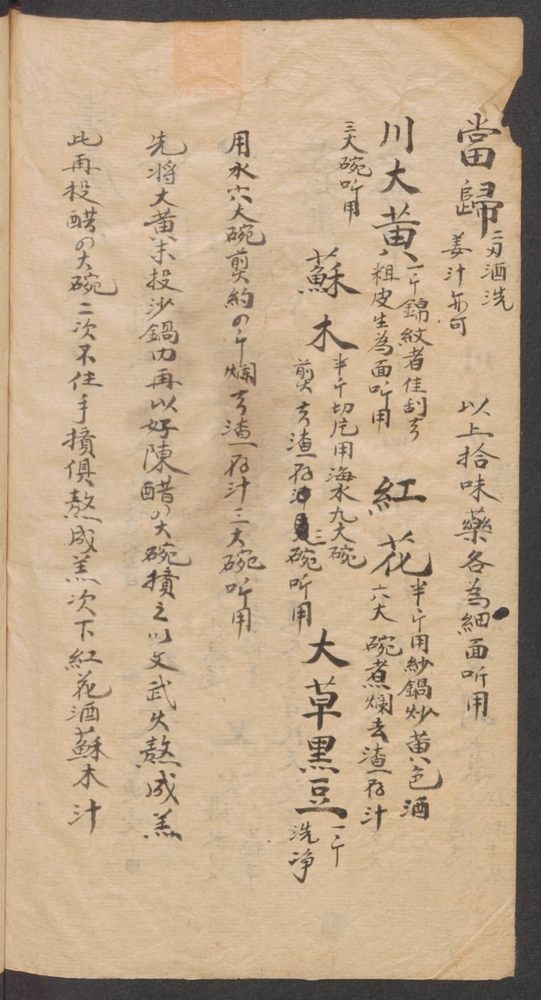 當歸 二刄酒洗
姜汁亦可
以上拾味藥各為細面听用
川大黃 一斤錦紋者佳刮去
粗皮生為面听用
紅花 半斤用紗鍋炒黃色酒
六大碗煮爛去渣存汁
三大碗听用
蘇木 半斤切片用海水九大碗
煎去渣存汁三碗听用
大草黑豆 一斤
洗净
用水六大碗煎約の斤爛去渣存汁三大碗听用
先将大黃末投沙鍋内再以好陳醋の大碗攢之以文武火熬成羔
此再投醋の大碗二次不住手攢俱熬成羔次下紅花酒蘇木汁